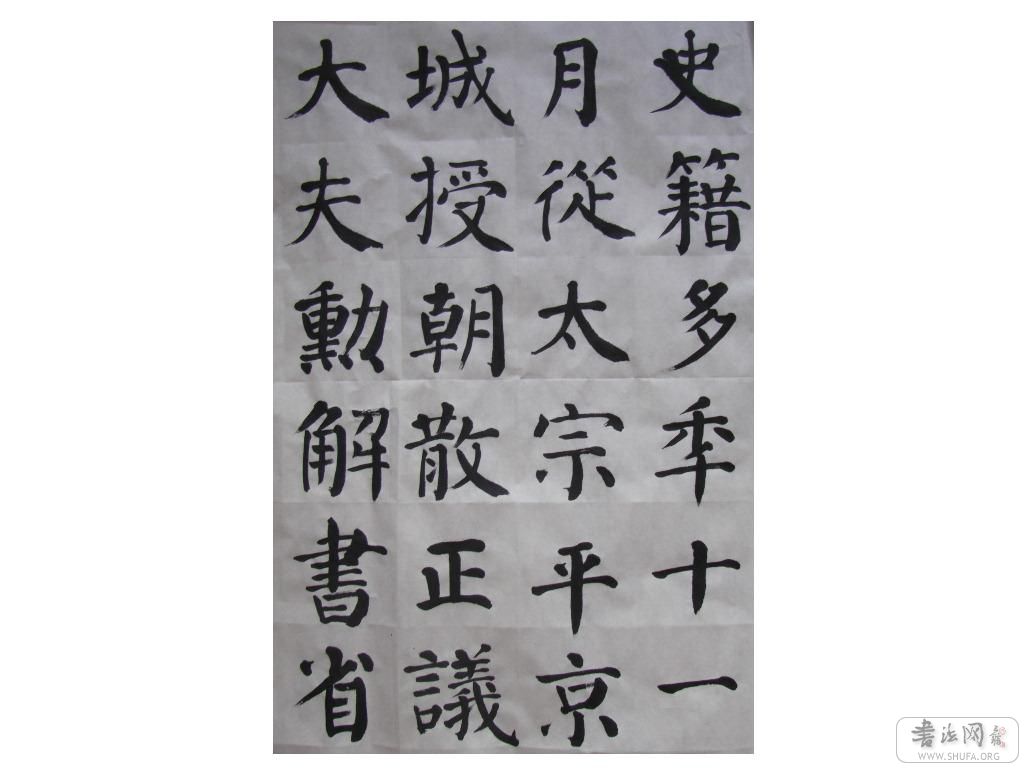 史籍多秊十一
月從太宗平京
城授朝散正議
大夫勳解書省
書法网
WWW.SHUFA.ORG